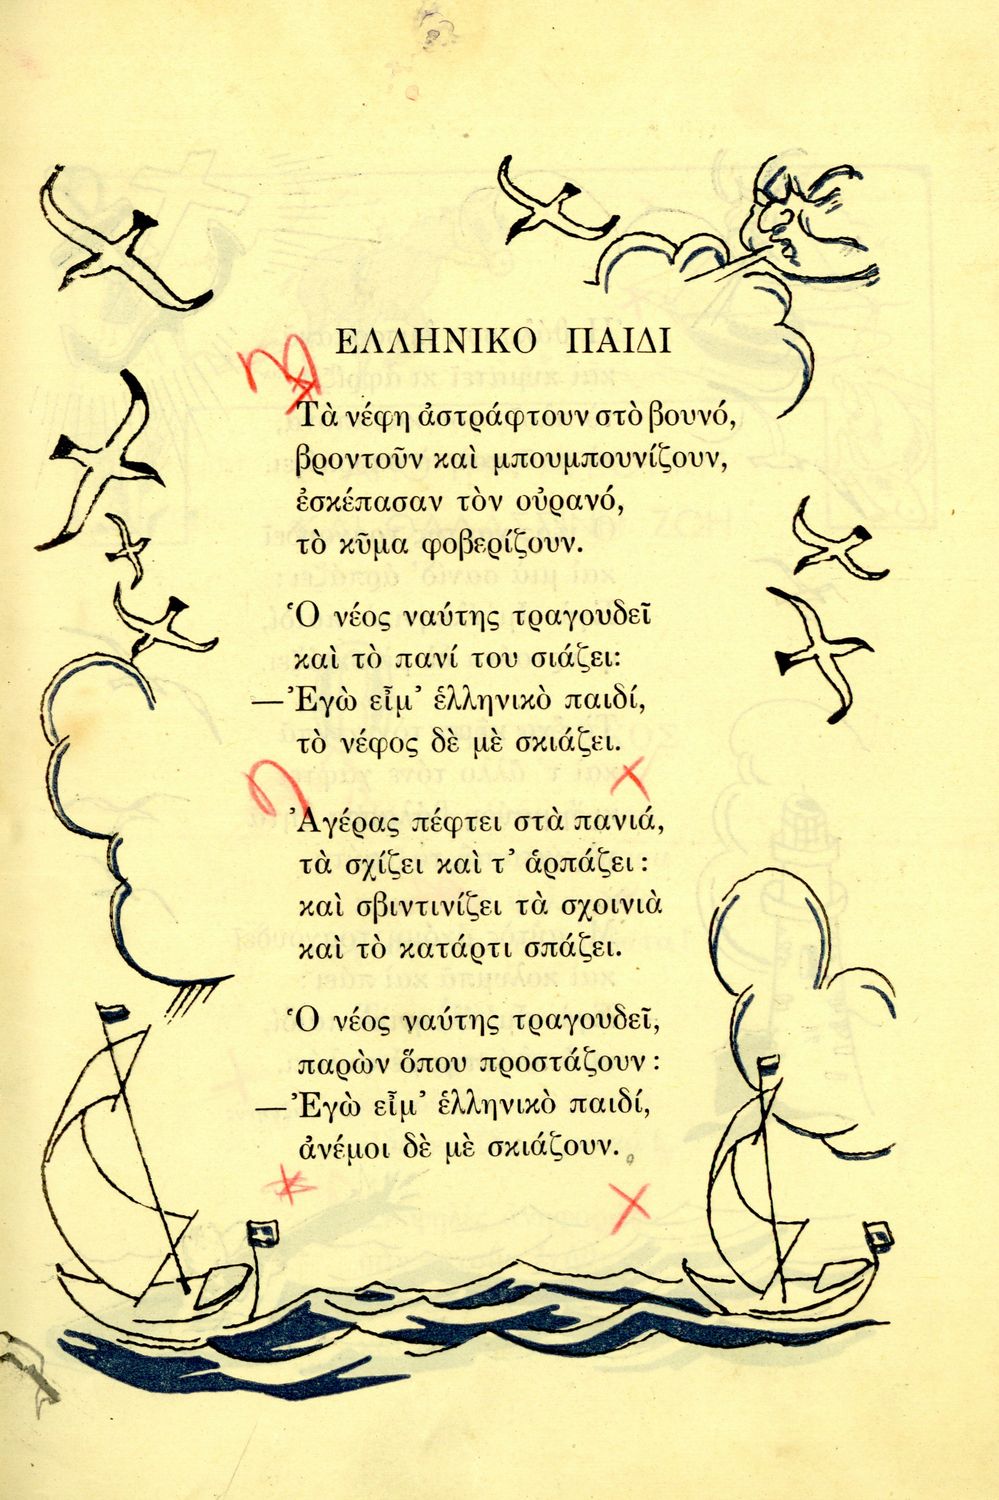 ΕΛΛΗΝΙΚΟ ΠΑΙΔΙ
Τὰ νέφη ἀστράφτουν στὸ βουνό,
βροντοῦν καὶ μπουμπουνίζουν,
ἐσκέπασαν τὸν οὐρανό,
τὸ κῦμα φοβερίζουν.
Ὁ νέος ναύτης τραγουδεῖ
καὶ τὸ πανί του σιάζει:
—Ἐγὼ εἶμ' ἑλληνικὸ παιδί,
τὸ νέφος δὲ μὲ σκιάζει.
Ἀγέρας πέφτει στὰ πανιά,
τὰ σχίζει καὶ τ' ἁρπάζει:
καὶ σβιντινίζει τὰ σχοινιὰ
καὶ τὸ κατάρτι σπάζει.
Ὁ νέος ναύτης τραγουδεῖ,
παρὼν ὅπου προστάζουν:
—Ἐγὼ εἶμ' ἑλληνικὸ παιδί,
ἀνέμοι δὲ μὲ σκιάζουν.